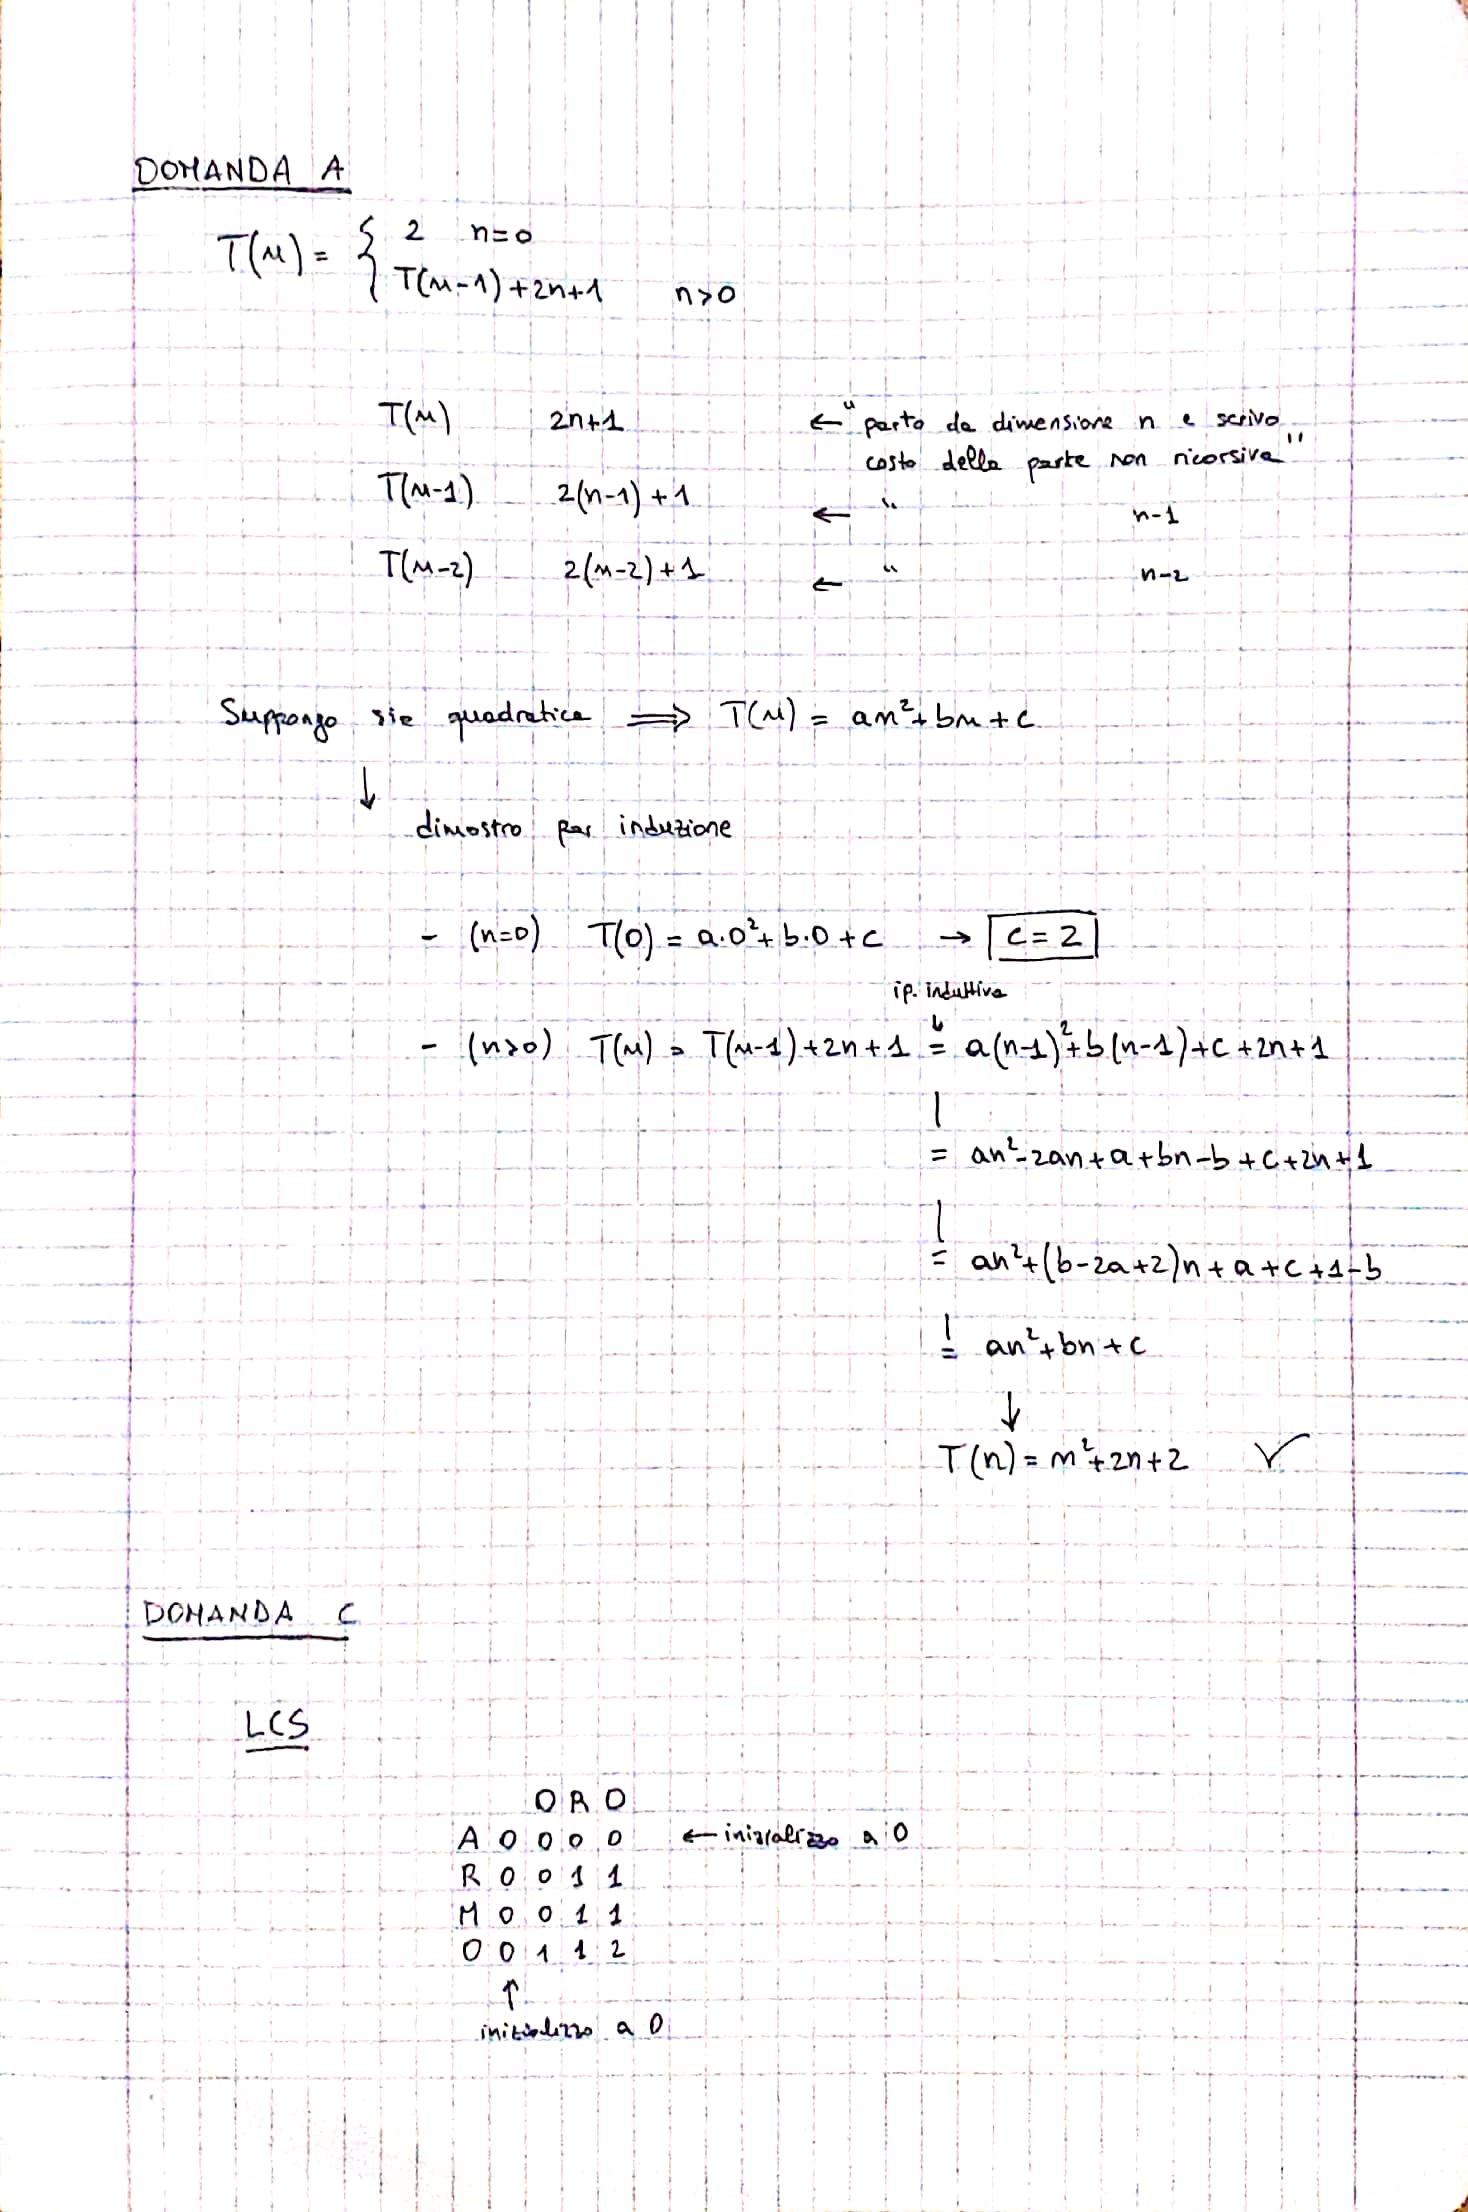 DOMANDA A
T(n) = { 2 n=0
T(n-1)+2n+1 n>0
T(n) 2n+1 ← "parto da dimensione n e scrivo
costo della parte non ricorsiva"
T(n-1) 2(n-1)+1 ← " n-1
T(n-2) 2(n-2)+1 ← " n-2
Suppongo sia quadratica ⟹ T(n) = an²+bn+c
↓
dimostro per induzione
- (n=0) T(0) = a·0²+b·0+c → c=2
ip. induttiva
↓
- (n>0) T(n) = T(n-1)+2n+1 = a(n-1)²+b(n-1)+c+2n+1
|
= an²-2an+a+bn-b+c+2n+1
|
= an²+(b-2a+2)n+a+c+1-b
!
= an²+bn+c
↓
T(n) = n²+2n+2 ✓
DOMANDA C
LCS
O R O
A 0 0 0 0 ← inizializzo a 0
R 0 0 1 1
M 0 0 1 1
O 0 1 1 2
↑
inizializzo a 0